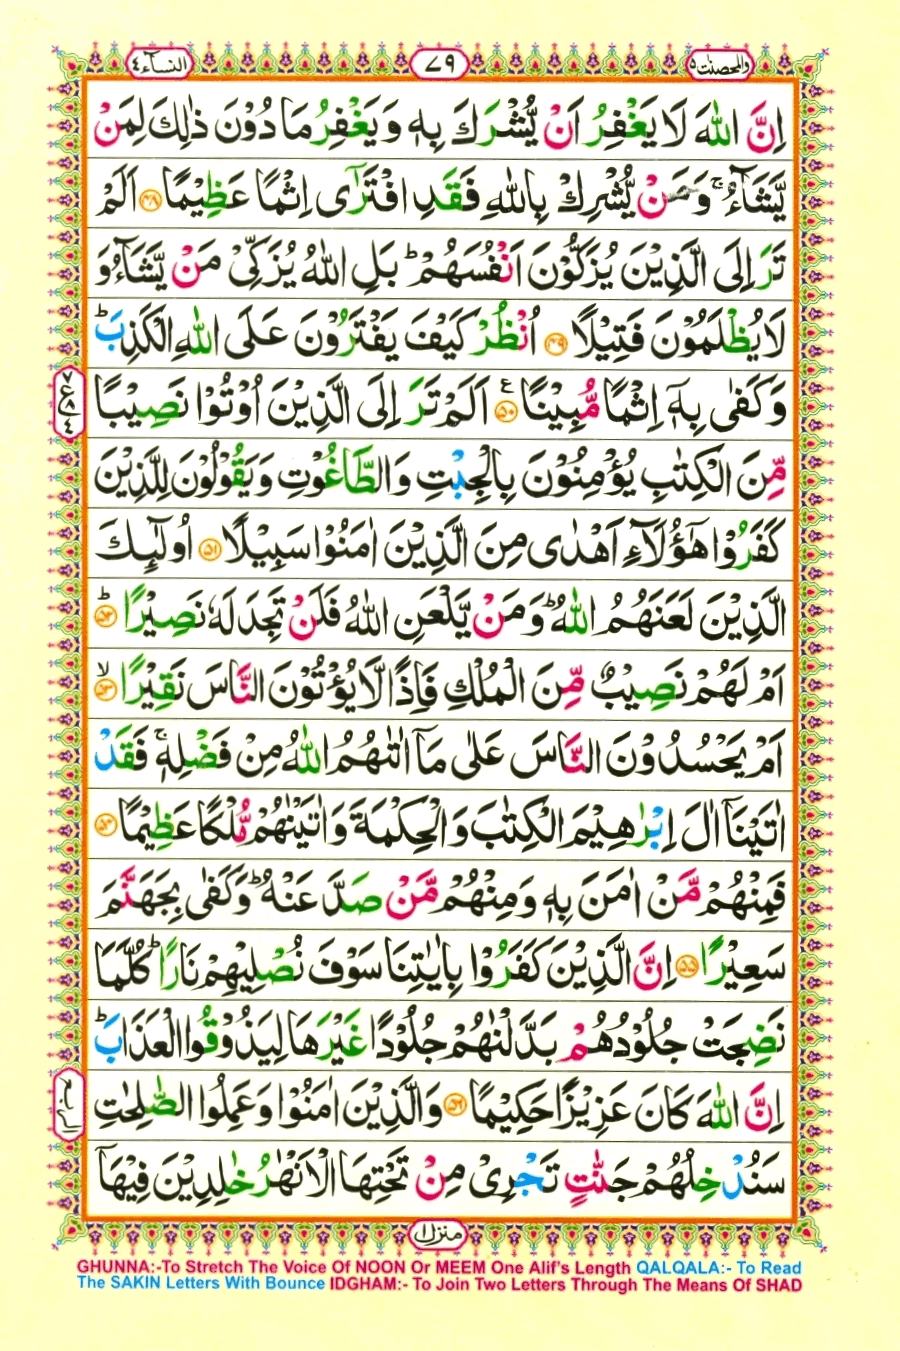 النساء ٤ ٧٩ والمحصنت ٥
اِنَّ اللّٰهَ لَا يَغْفِرُ اَنْ يُّشْرَكَ بِهٖ وَيَغْفِرُ مَا دُوْنَ ذٰلِكَ لِمَنْ
يَّشَآءُ ۚ وَمَنْ يُّشْرِكْ بِاللّٰهِ فَقَدِ افْتَرٰٓى اِثْمًا عَظِيْمًا ﴿٤٨﴾ اَلَمْ
تَرَ اِلَى الَّذِيْنَ يُزَكُّوْنَ اَنْفُسَهُمْ ؕ بَلِ اللّٰهُ يُزَكِّىْ مَنْ يَّشَآءُ وَ
لَا يُظْلَمُوْنَ فَتِيْلًا ﴿٤٩﴾ اُنْظُرْ كَيْفَ يَفْتَرُوْنَ عَلَى اللّٰهِ الْكَذِبَ ؕ
وَكَفٰى بِهٖۤ اِثْمًا مُّبِيْنًا ﴿٥٠﴾ ع اَلَمْ تَرَ اِلَى الَّذِيْنَ اُوْتُوْا نَصِيْبًا
مِّنَ الْكِتٰبِ يُؤْمِنُوْنَ بِالْجِبْتِ وَالطَّاغُوْتِ وَيَقُوْلُوْنَ لِلَّذِيْنَ
كَفَرُوْا هٰٓؤُلَآءِ اَهْدٰى مِنَ الَّذِيْنَ اٰمَنُوْا سَبِيْلًا ﴿٥١﴾ اُولٰٓئِكَ
الَّذِيْنَ لَعَنَهُمُ اللّٰهُ ؕ وَمَنْ يَّلْعَنِ اللّٰهُ فَلَنْ تَجِدَ لَهٗ نَصِيْرًا ؕ ﴿٥٢﴾
اَمْ لَهُمْ نَصِيْبٌ مِّنَ الْمُلْكِ فَاِذًا لَّا يُؤْتُوْنَ النَّاسَ نَقِيْرًا ۙ ﴿٥٣﴾
اَمْ يَحْسُدُوْنَ النَّاسَ عَلٰى مَاۤ اٰتٰىهُمُ اللّٰهُ مِنْ فَضْلِهٖ ۚ فَقَدْ
اٰتَيْنَاۤ اٰلَ اِبْرٰهِيْمَ الْكِتٰبَ وَالْحِكْمَةَ وَاٰتَيْنٰهُمْ مُّلْكًا عَظِيْمًا ﴿٥٤﴾
فَمِنْهُمْ مَّنْ اٰمَنَ بِهٖ وَمِنْهُمْ مَّنْ صَدَّ عَنْهُ ؕ وَكَفٰى بِجَهَنَّمَ
سَعِيْرًا ﴿٥٥﴾ اِنَّ الَّذِيْنَ كَفَرُوْا بِاٰيٰتِنَا سَوْفَ نُصْلِيْهِمْ نَارًا ؕ كُلَّمَا
نَضِجَتْ جُلُوْدُهُمْ بَدَّلْنٰهُمْ جُلُوْدًا غَيْرَهَا لِيَذُوْقُوا الْعَذَابَ ؕ
اِنَّ اللّٰهَ كَانَ عَزِيْزًا حَكِيْمًا ﴿٥٦﴾ وَالَّذِيْنَ اٰمَنُوْا وَعَمِلُوا الصّٰلِحٰتِ
سَنُدْخِلُهُمْ جَنّٰتٍ تَجْرِىْ مِنْ تَحْتِهَا الْاَنْهٰرُ خٰلِدِيْنَ فِيْهَاۤ
منزل ١
GHUNNA:-To Stretch The Voice Of NOON Or MEEM One Alif's Length QALQALA:- To Read
The SAKIN Letters With Bounce IDGHAM:- To Join Two Letters Through The Means Of SHAD